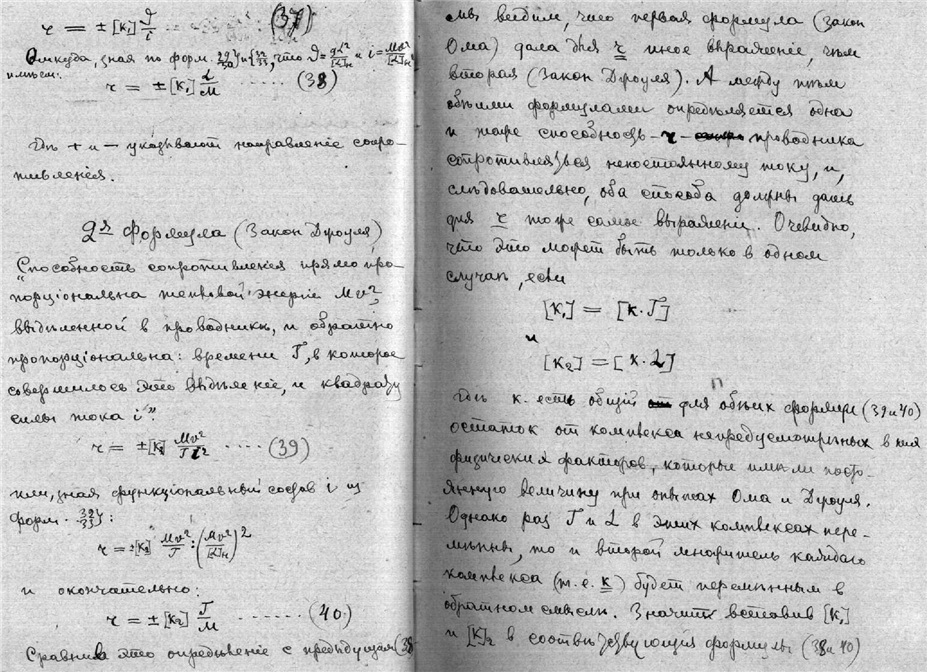 r = ± [к₁] 𝒥/i ..... (37)
Откуда, зная по форм. и , что и i =
имѣем:
r = ± [к₁] L/M ..... (38)
Гдѣ + и — указывают направленіе сопро-
тивленія.
2я Формула (Закон Джоуля)
„Способность сопротивленія прямо про-
порціональна тепловой энергіи Mv²,
выдѣленной в проводникѣ, и обратно
пропорціональна: времени T, в которое
совершилось это выдѣленіе, и квадрату
силы тока i"
r = ± [к₂] Mv²/T i² ..... (39)
или, зная функціональный состав i из
форм. :
r = ± [к₂] Mv²/T : (Mv²/[L]н)²
и окончательно:
r = ± [к₂] T/M ..... (40)
Сравнив это опредѣленіе с предыдущим (38)
мы видим, что первая формула (закон
Ома) дала для r иное выраженіе, чѣм
вторая (Закон Джоуля). А между тѣм
обѣими формулами опредѣляется одна
и та же способность — r — проводника
сопротивляться непостоянному току, и,
слѣдовательно, оба способа должны дать
для r то же самое выраженіе. Очевидно,
что это может быть только в одном
случаѣ, если
[к₁] = [к·T]
и
[к₂] = [к·L]
гдѣ к. есть общій для обѣих формул (39 и 40)
остаток от комплекса непредусмотрѣнных в них
физических факторов, которые имѣли посто-
янную величину при опытах Ома и Джоуля.
Однако раз T и L в этих комплексах пере-
мѣнны, то и второй множитель каждаго
комплекса (т.е. к) будет перемѣнным в
обратном смыслѣ. Значит вставив [к₁]
и [к]₂ в соотвѣтствующія формулы (38 и 40)